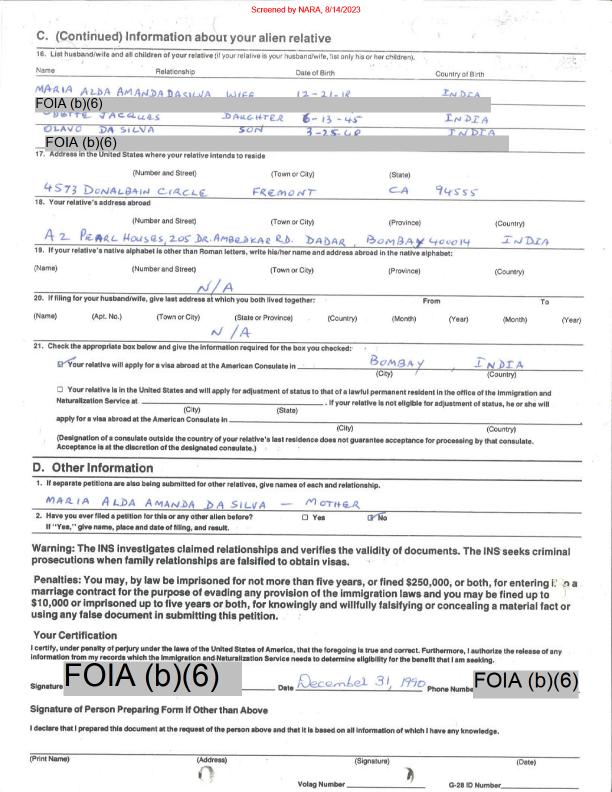 Screened by NARA, 8/14/2023
C. (Continued) Information about your alien relative
16. List husband/wife and all children of your relative (if your relative is your husband/wife, list only his or her children).
Name Relationship Date of Birth Country of Birth
MARIA ALDA AMANDA DASILVA WIFE 12-21-18 INDIA
FOIA (b)(6)
ODETTE JACQUES DAUGHTER 6-13-45 INDIA
OLAVO DA SILVA SON 3-25-48 INDIA
FOIA (b)(6)
17. Address in the United States where your relative intends to reside
(Number and Street) (Town or City) (State)
4573 DONALBAIN CIRCLE FREMONT CA 94555
18. Your relative's address abroad
(Number and Street) (Town or City) (Province) (Country)
A2 PEARL HOUSES, 205 DR. AMBEDKAR RD. DADAR, BOMBAY 400014 INDIA
19. If your relative's native alphabet is other than Roman letters, write his/her name and address abroad in the native alphabet:
(Name) (Number and Street) (Town or City) (Province) (Country)
N/A
20. If filing for your husband/wife, give last address at which you both lived together: From To
(Name) (Apt. No.) (Town or City) (State or Province) (Country) (Month) (Year) (Month) (Year)
N/A
21. Check the appropriate box below and give the information required for the box you checked:
Your relative will apply for a visa abroad at the American Consulate in BOMBAY, INDIA
(City) (Country)
Your relative is in the United States and will apply for adjustment of status to that of a lawful permanent resident in the office of the Immigration and
Naturalization Service at . If your relative is not eligible for adjustment of status, he or she will
(City) (State)
apply for a visa abroad at the American Consulate in
(City) (Country)
(Designation of a consulate outside the country of your relative's last residence does not guarantee acceptance for processing by that consulate.
Acceptance is at the discretion of the designated consulate.)
D. Other Information
1. If separate petitions are also being submitted for other relatives, give names of each and relationship.
MARIA ALDA AMANDA DA SILVA — MOTHER
2. Have you ever filed a petition for this or any other alien before? Yes No
If "Yes," give name, place and date of filing, and result.
Warning: The INS investigates claimed relationships and verifies the validity of documents. The INS seeks criminal
prosecutions when family relationships are falsified to obtain visas.
Penalties: You may, by law be imprisoned for not more than five years, or fined $250,000, or both, for entering a
marriage contract for the purpose of evading any provision of the immigration laws and you may be fined up to
$10,000 or imprisoned up to five years or both, for knowingly and willfully falsifying or concealing a material fact or
using any false document in submitting this petition.
Your Certification
I certify, under penalty of perjury under the laws of the United States of America, that the foregoing is true and correct. Furthermore, I authorize the release of any
information from my records which the Immigration and Naturalization Service needs to determine eligibility for the benefit that I am seeking.
Signature FOIA (b)(6) Date December 31, 1990 Phone Number FOIA (b)(6)
Signature of Person Preparing Form if Other than Above
I declare that I prepared this document at the request of the person above and that it is based on all information of which I have any knowledge.
(Print Name) (Address) (Signature) (Date)
Volag Number G-28 ID Number